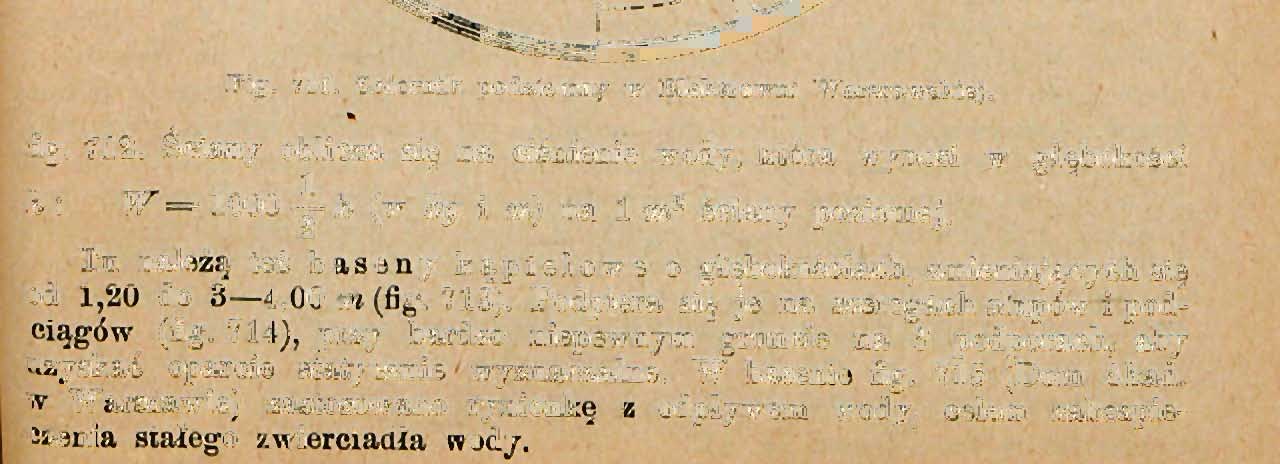 Fig. 711. Zbiornik podziemny w Elektrowni Warszawskiej.
fig. 712. Ściany oblicza się na ciśnienie wody, która wynosi w głębokości
h: W = 1000 h (w kg i m) na 1 m² ściany poziomej.
Tu należą też baseny kąpielowe o głębokościach, zmieniających się
od 1,20 do 3—4,00 m (fig. 713). Podpiera się je na szeregach słupów i pod-
ciągów (fig. 714), przy bardzo niepewnym gruncie na 3 podporach, aby
uzyskać oparcie statycznie wyznaczalne. W basenie fig. 715 (Dom Akad.
w Warszawie) zastosowano rynienkę z odpływem wody, celem zabezpie-
czenia stałego zwierciadła wody.